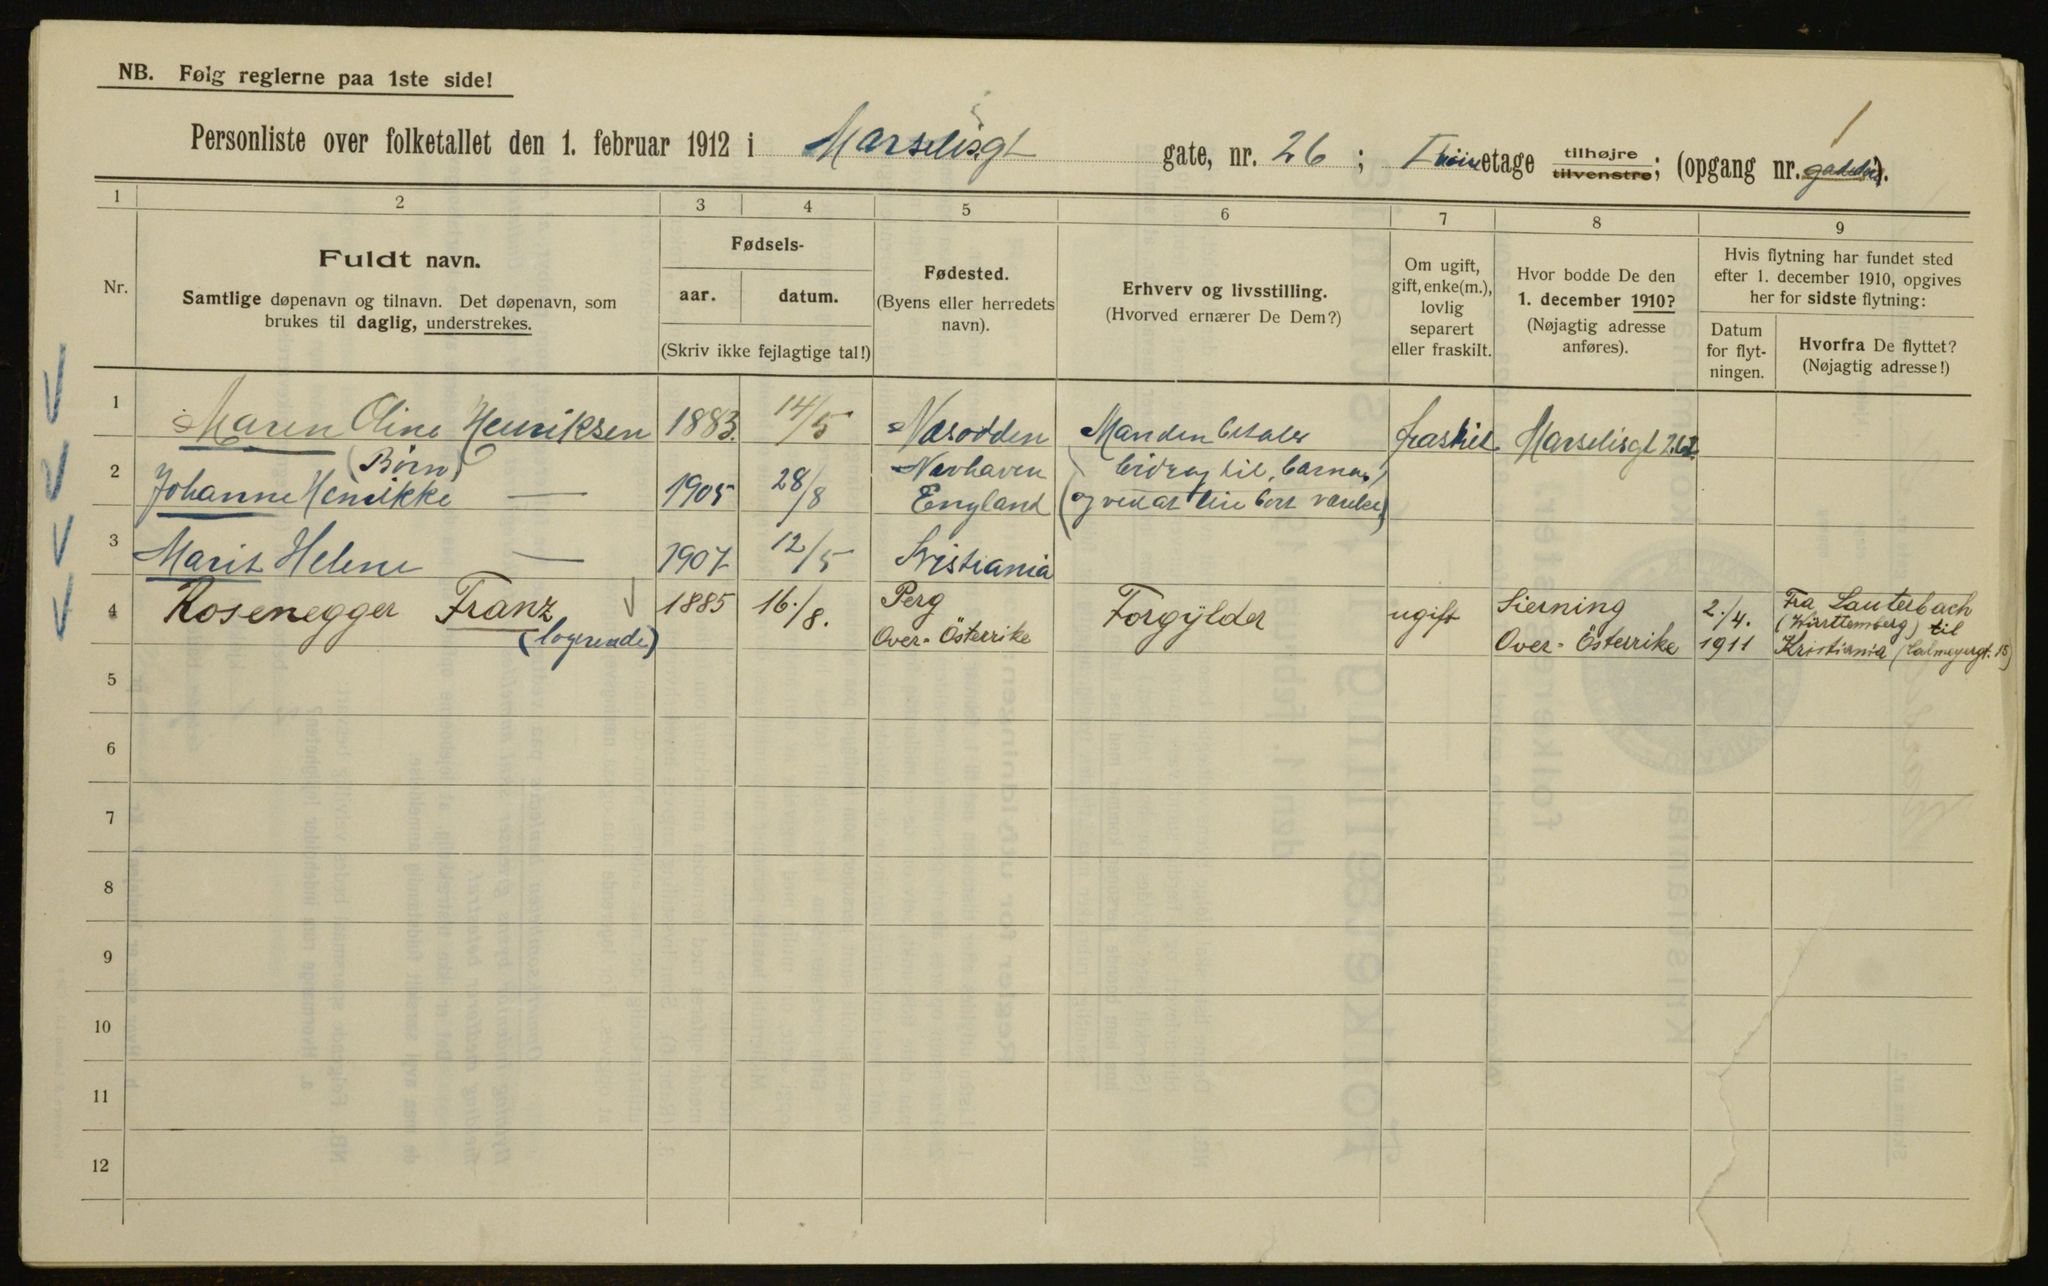 NB. Følg reglerne paa 1ste side!
1
Personliste over folketallet den 1. februar 1912 i Marselisgt gate, nr. 26 ; etage tilhøjre tilvenstre; (opgang nr. ).
1 2 3 4 5 6 7 8 9
Nr.
Fuldt navn.
Samtlige døpenavn og tilnavn. Det døpenavn, som
brukes til daglig, understrekes.
Fødsels-
aar.
datum.
(Skriv ikke fejlagtige tal!)
Fødested.
(Byens eller herredets
navn).
Erhverv og livsstilling.
(Hvorved ernærer De Dem?)
Om ugift,
gift, enke(m.),
lovlig
separert
eller fraskilt.
Hvor bodde De den
1. december 1910?
(Nøjagtig adresse
anføres).
Hvis flytning har fundet sted
efter 1. december 1910, opgives
her for sidste flytning:
Datum
for flyt-
ningen.
Hvorfra De flyttet?
(Nøjagtig adresse!)
1 Maren Oline Henriksen 1883. 14/5 Næsodden Manden betaler fraskilt Marselisgt 26
(Børn)
2 Johanne Henrikke — 1905 28/8 Newhaven England bidrag til barna
(og ved at
3 Marit Helene — 1907 12/5 Kristiania
4 Rosenegger Franz 1885 16./8. Perg Forgylder ugift Sierning 2./4. Fra Lauterbach
(Württemberg) til
(logerende) Over-Österrike Over-Österrike 1911 Kristiania (Calmeyergt. 15)
5
6
7
8
9
10
11
12